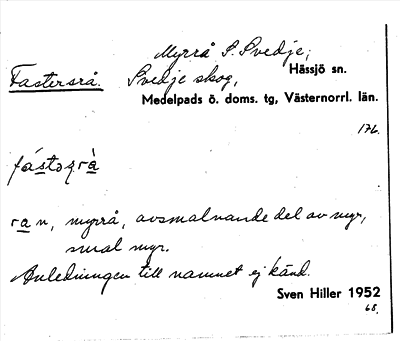 Myrrå S. Svedje,
Fastersrå. Svedje skog, Hässjö sn.
Medelpads ö. doms. tg, Västernorrl. län.
176.
fástəṣrà
ra n, myrrå, avsmalnande del av myr,
smal myr.
Anledningen till namnet ej känd.
Sven Hiller 1952
68.